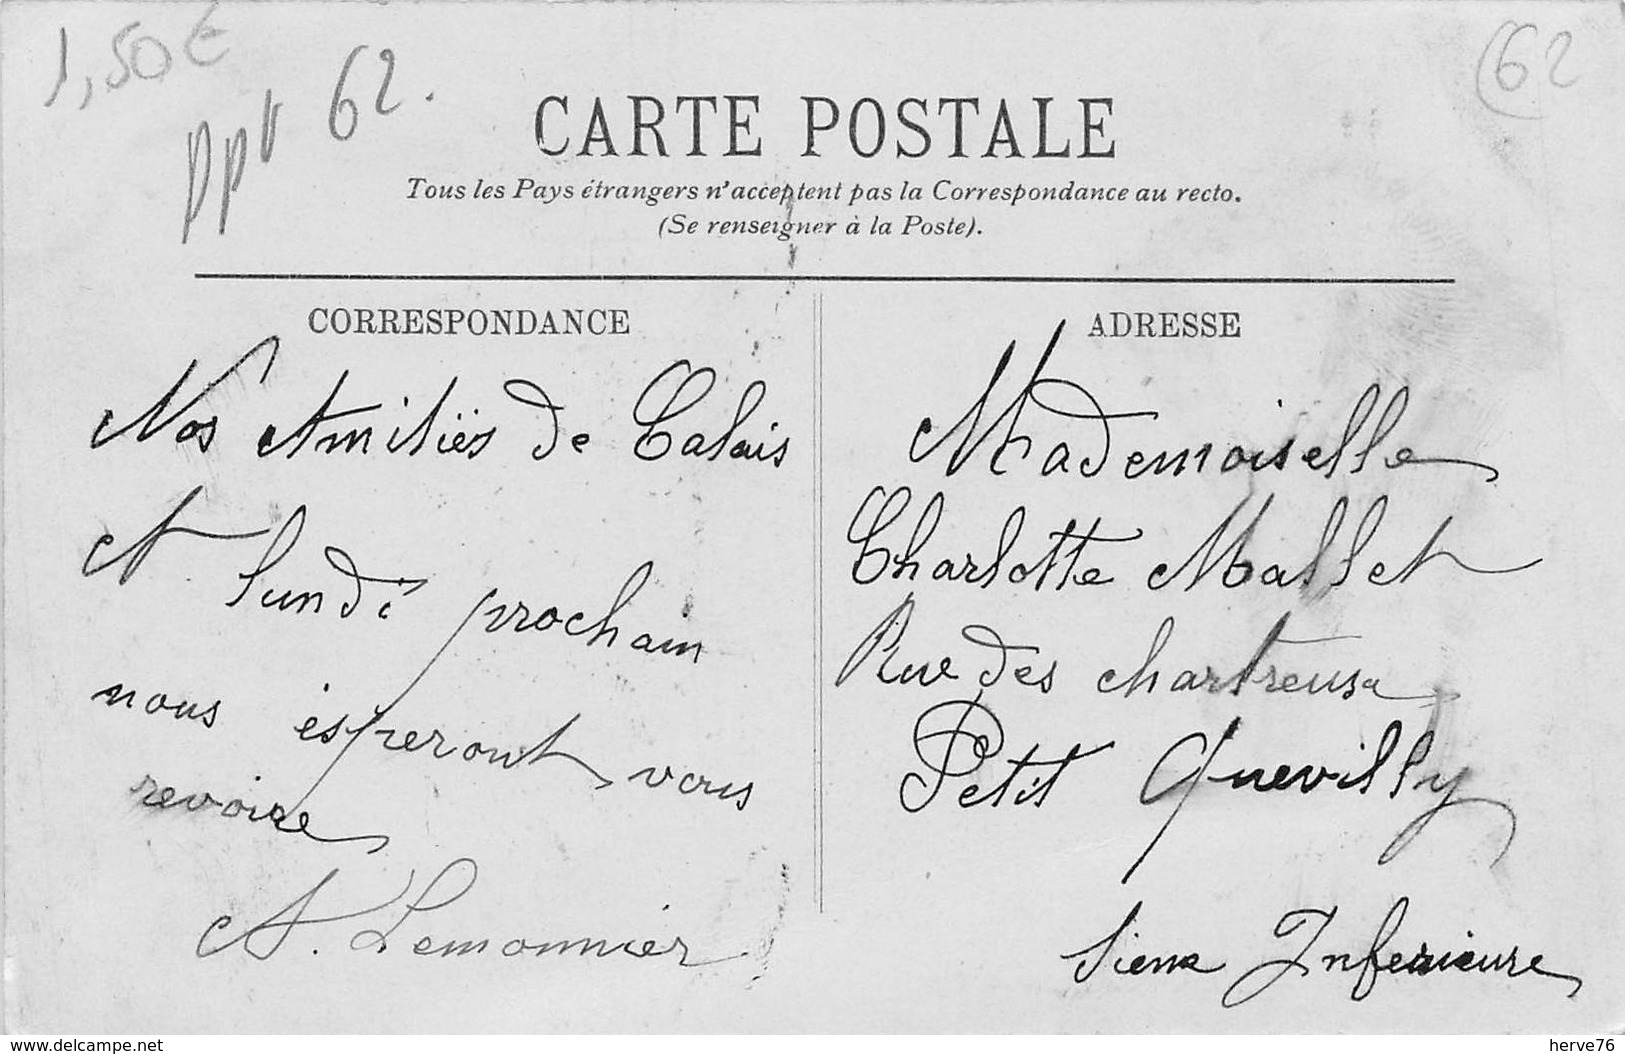 1,50€
ppt 62.
(62
CARTE POSTALE
Tous les Pays étrangers n'acceptent pas la Correspondance au recto.
(Se renseigner à la Poste).
CORRESPONDANCE
Nos Amitiés de Calais
et lundi prochain
nous ésperont vous
revoire
A. Lemonnier
ADRESSE
Mademoiselle
Charlotte Mallet
Rue des chartreuse
Petit Quevilly
Siene Inferieure
www.delcampe.net
herve76